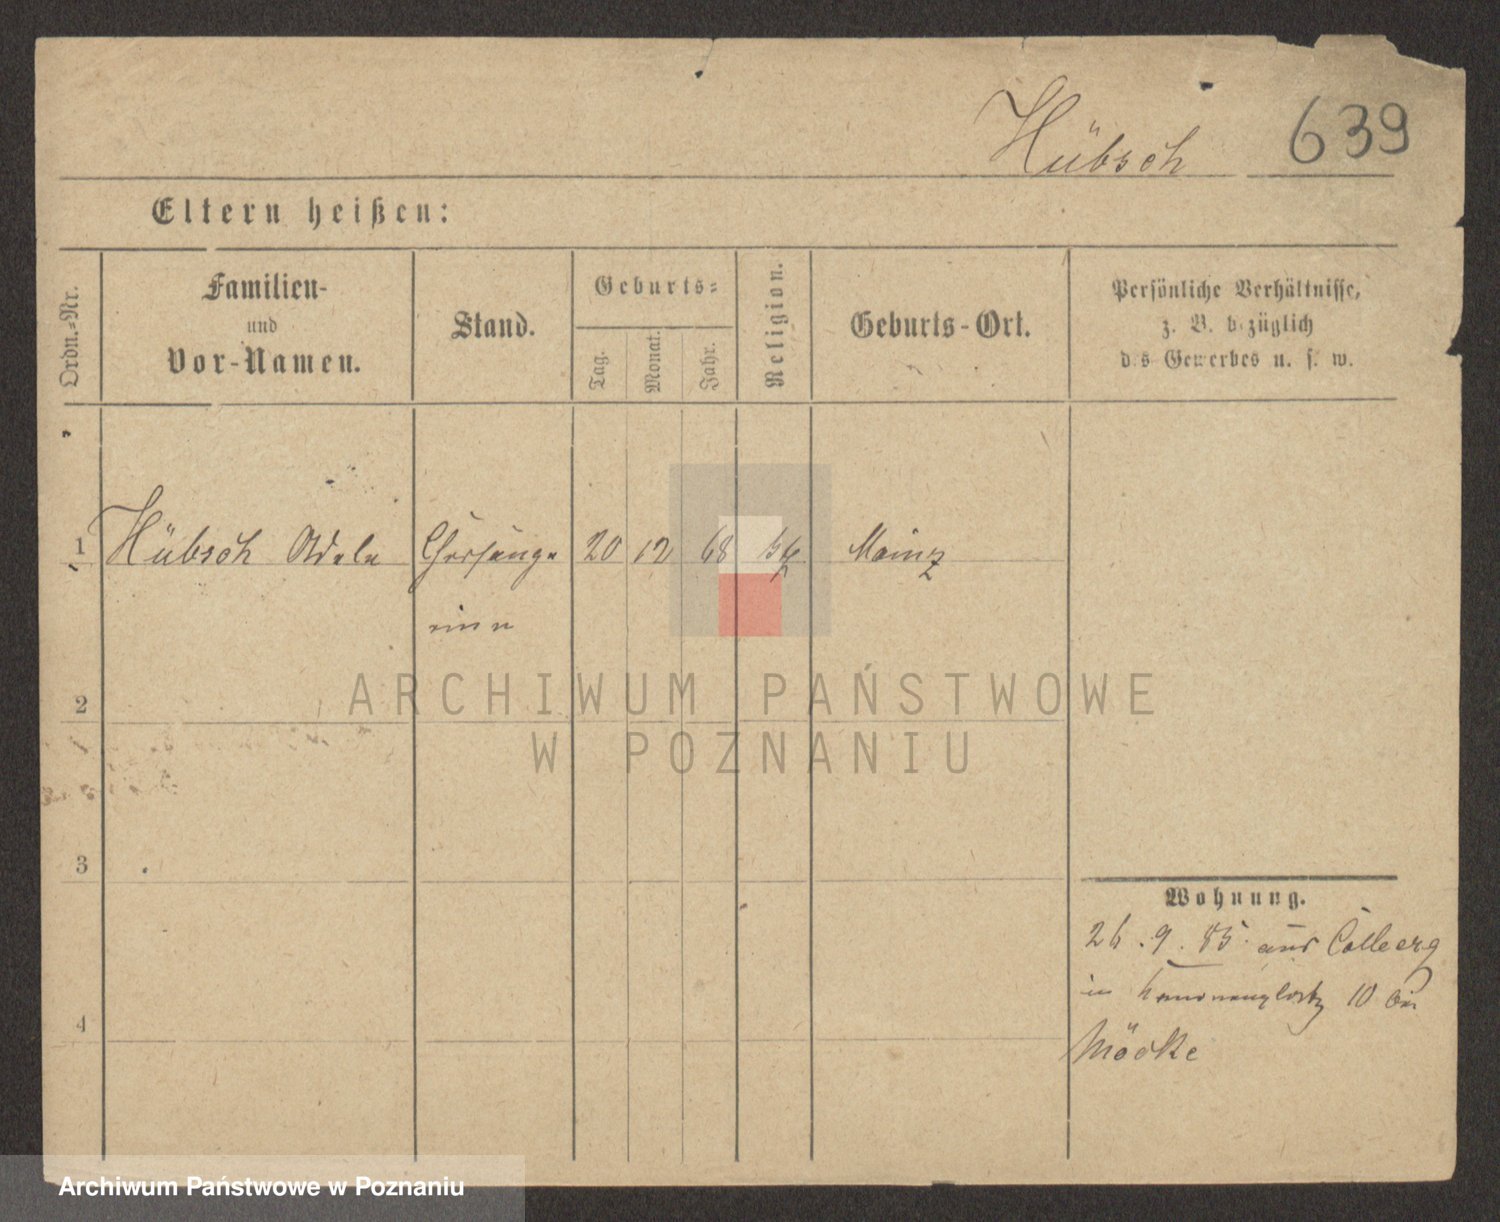 Hübsch 639
Eltern heißen:
Ordn.-Nr.
Familien-
und
Vor-Namen.
Stand.
Geburts-
Tag.
Monat.
Jahr.
Religion.
Geburts-Ort.
Persönliche Verhältnisse,
z. B. bezüglich
des Gewerbes u. s. w.
1 Hübsch Adele Chorsänge 20 12 68 Mainz
rinn
2
3
4
Wohnung.
26.9.85 aus Colberg
in Kanonenplatz 10 bei
Mödke
ARCHIWUM PAŃSTWOWE
W POZNANIU
Archiwum Państwowe w Poznaniu